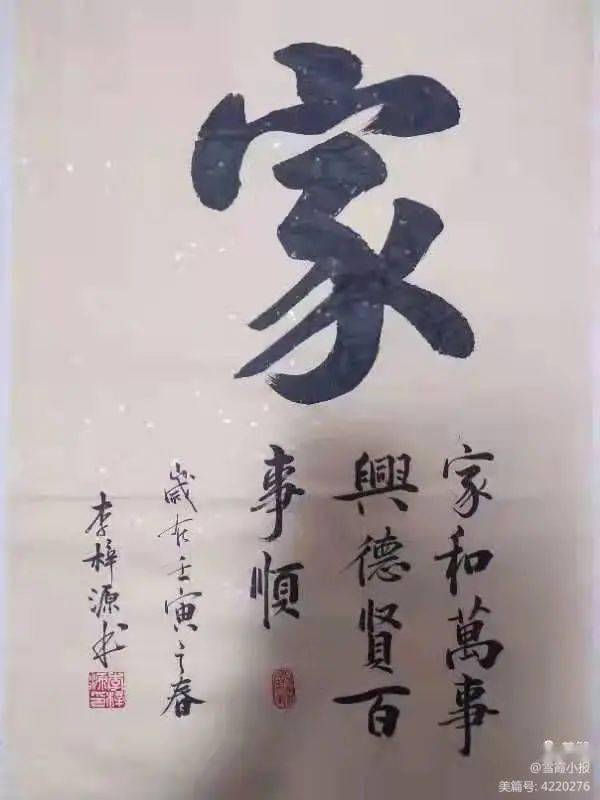 家
家和萬事
興德賢百
事順
歲在壬寅之春
李梓源书
@雪霞小报
美篇号: 4220276